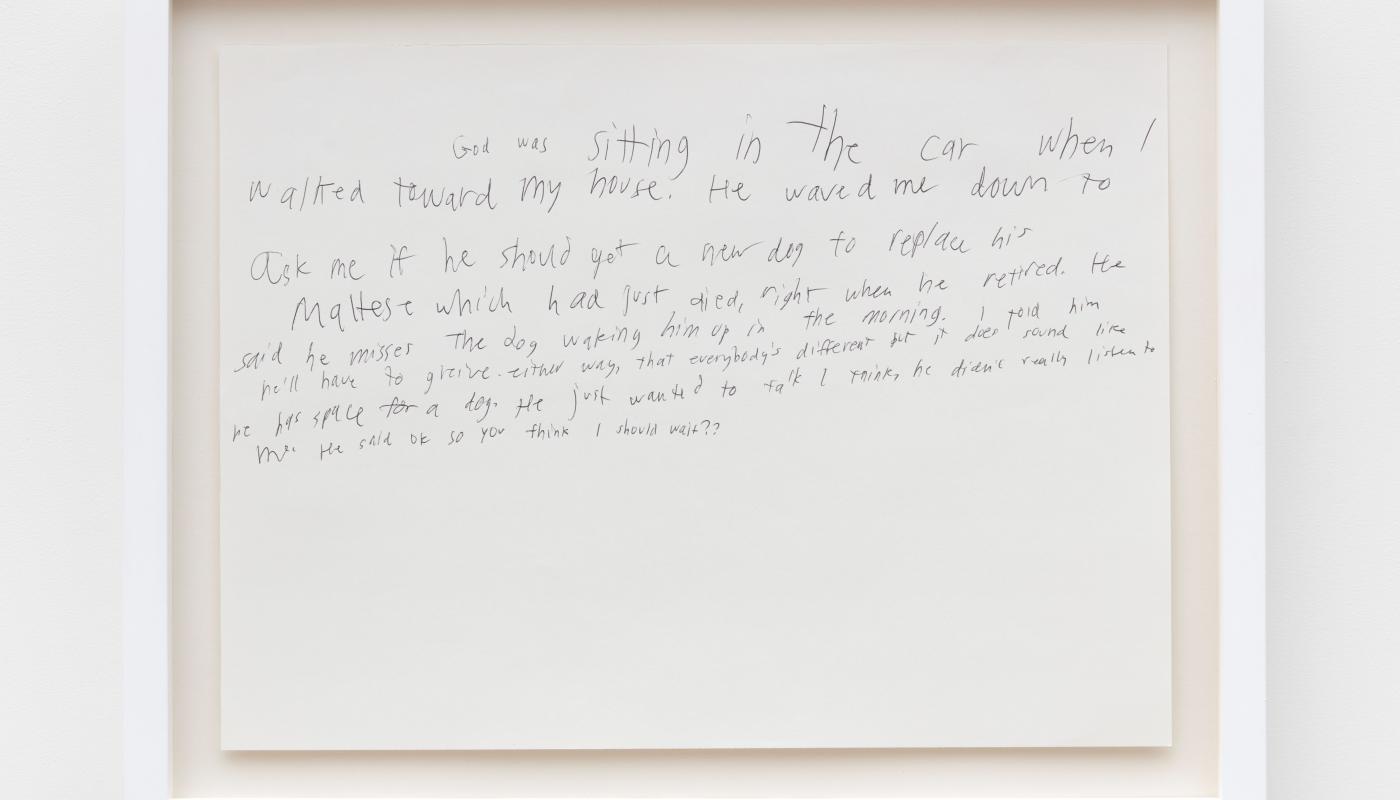 God was sitting in the car when I
walked toward my house. He waved me down to
Ask me if he should get a new dog to replace his
Maltese which had just died, right when he retired. He
said he misses the dog waking him up in the morning. I told him
he'll have to greive either way, that everybody's different but it does sound like
he has space for a dog. He just wanted to talk I think, he didn't really listen to
me. He said ok so you think I should wait??